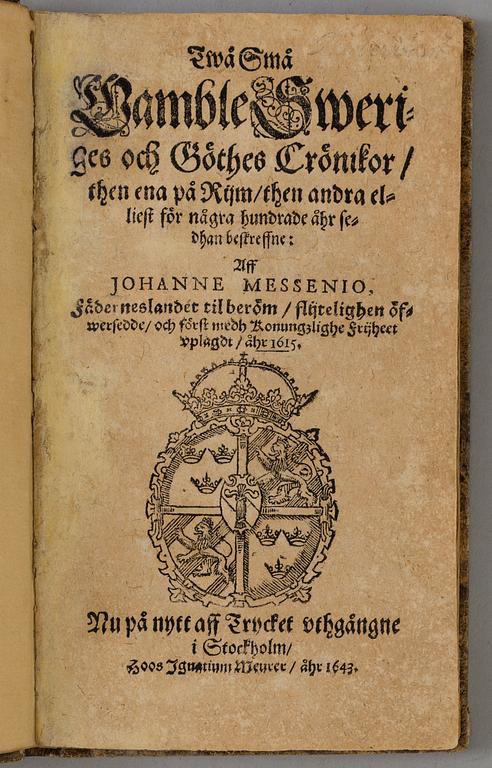 Twå Små
Gamble Sweri-
ges och Göthes Crönikor /
then ena på Rijm / then andra el-
liest för några hundrade åhr se-
dhan beskreffne:
Aff
JOHANNE MESSENIO,
Fäderneslandet til beröm / flijtelighen öf-
wersedde / och först medh Konungzlighe Frijheet
vplagdt / åhr 1615.
Nu på nytt aff Trycket vthgångne
i Stockholm /
Hoos Ignatium Meurer / åhr 1643.